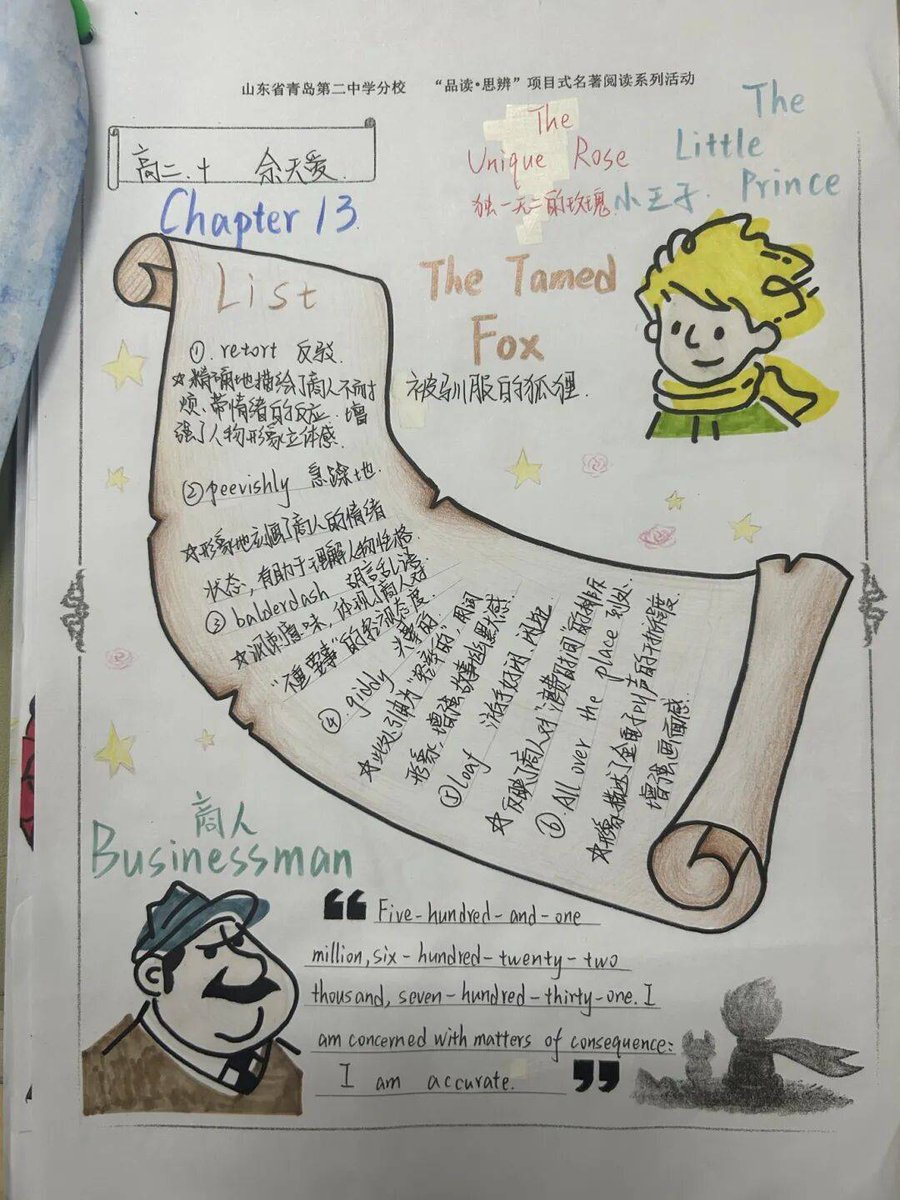 山东省青岛第二中学分校 “品读·思辨”项目式名著阅读系列活动
高二.十 余天爱
The
Unique Rose
独一无二的玫瑰
The
Little
Prince
小王子.
Chapter 13.
The Tamed
Fox
被驯服的狐狸.
List
①. retort 反驳.
☆精确地描绘了商人不耐
烦、带情绪的反应.增
强了人物形象立体感.
②peevishly 急躁地.
☆形象地刻画了商人的情绪
状态,有助于理解人物性格
③ balderdash 胡言乱语.
☆讽刺意味,体现了商人对
“不重要事”的轻视态度.
④ giddy 头晕的
☆此处引申为“愚蠢的”,
形象,增强故事幽默感
⑤loaf 游手好闲,闲逛
☆反映了商人对“浪费时间”的排斥
⑥ All over the place 到处
☆形象描述了金龟子叫声的干扰程度
增强画面感
商人
Businessman
“ Five-hundred-and-one
million, six-hundred-twenty-two
thousand, seven-hundred-thirty-one. I
am concerned with matters of consequence:
I am accurate. ”